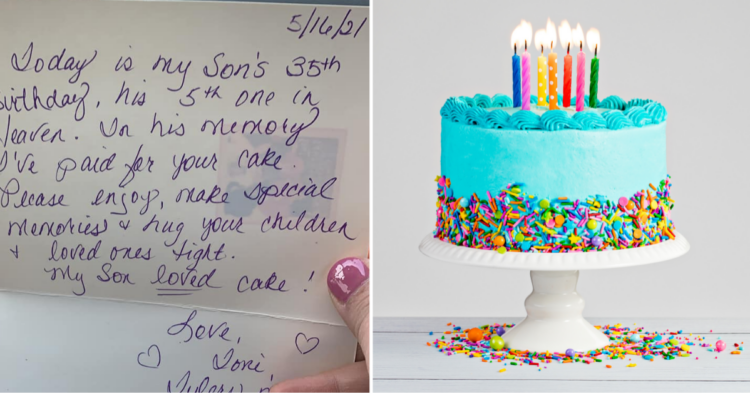 5/16/21
Today is my Son's 35th
birthday, his 5th one in
Heaven. In his memory
I've paid for your cake.
Please enjoy, make special
memories & hug your children
& loved ones tight.
My Son loved cake!
Love,
Toni